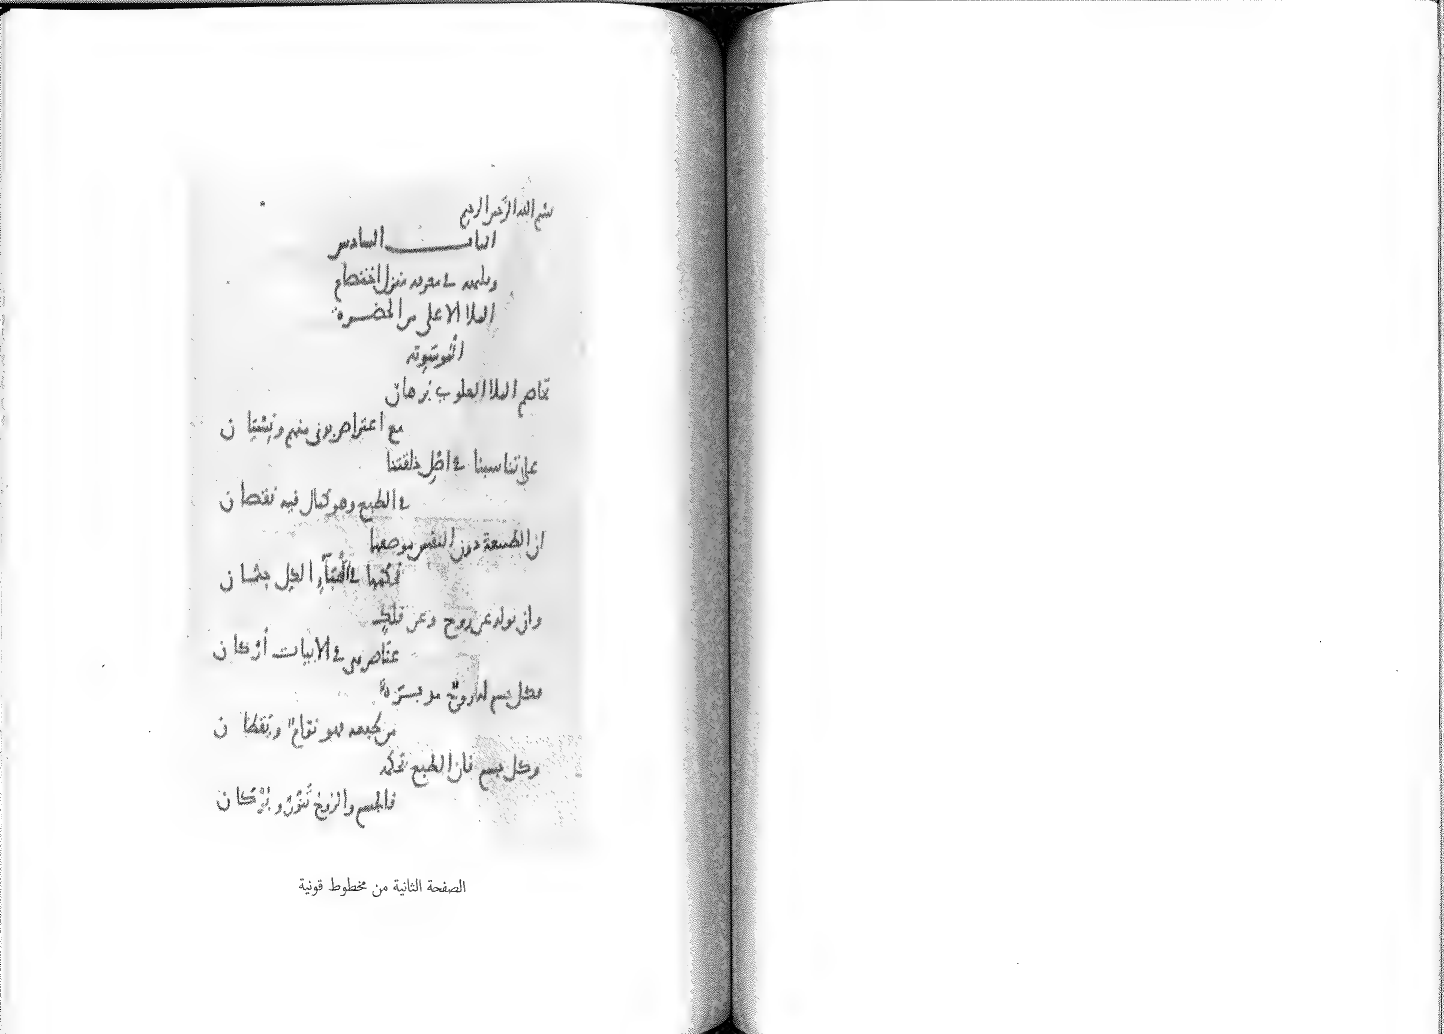 بسم الله الرحمن الرحيم
الباب السادس
وثلثمائة في معرفة منزل اختصام
الملا الاعلى من الحضرة
الموسوية
تخاصم الملا العلوي برهان
مع اعتراض بدى منهم ونسيان
على تناسبنا في اصل خلقتنا
في الطبع وهو كمال فيه نقصان
ان الطبيعة دون النفس موضعها
فحكمها في الكل جثمان
وان تولد عن روح وعن فلك
عناصر هي في الابيات أركان
فكل جسم له روح مدبرة
من طبعه فهو نقاح ويقظان
وكل جسم فان الطبع يحكمه
فالجسم والروح تنور وبركان
الصفحة الثانية من مخطوط قونية